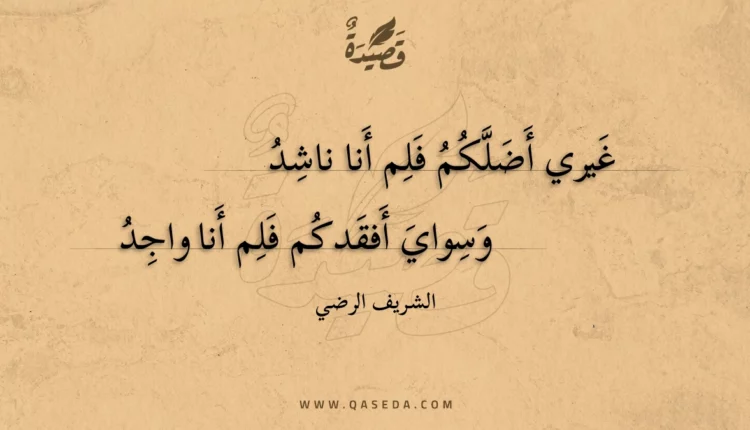 قَصِيْدَةٌ
غَيري أَضَلَّكُمُ فَلِم أَنا ناشِدُ
وَسِوايَ أَفقَدكُم فَلِم أَنا واجِدُ
الشريف الرضي
WWW.QASEDA.COM